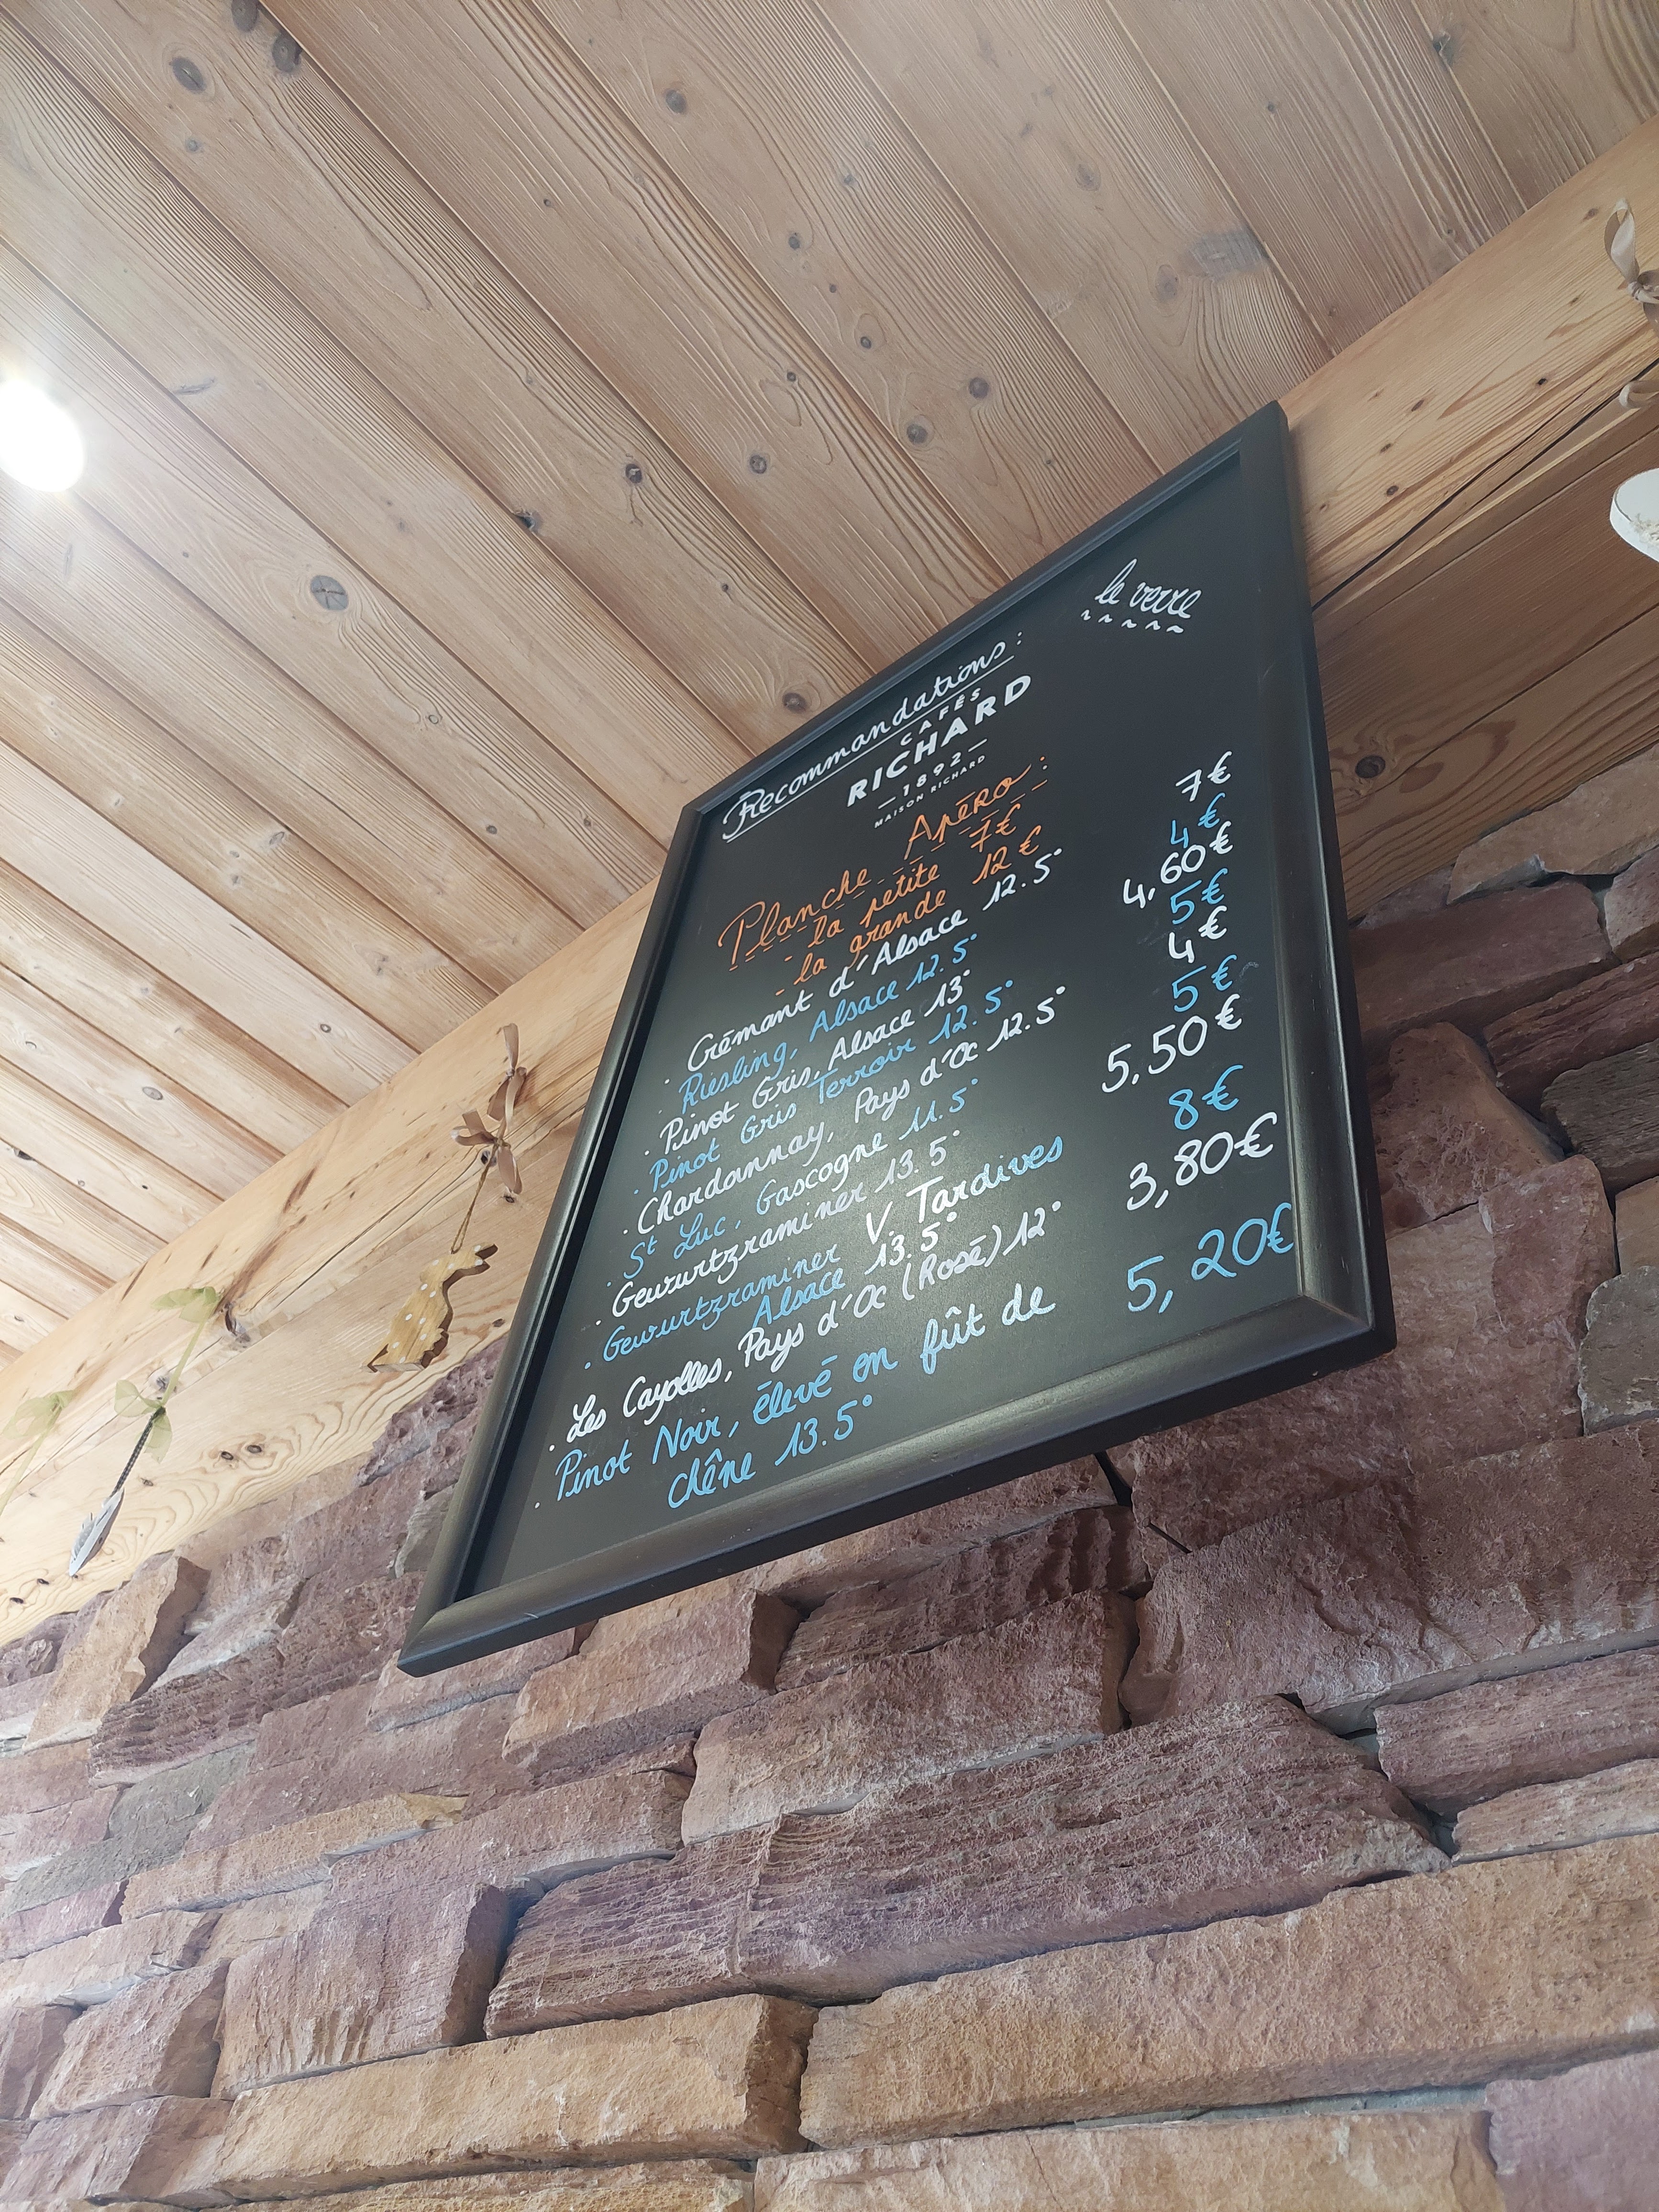 Recommandations : le verre
CAFÉS
RICHARD
— 1892 —
MAISON RICHARD
Planche Apéro :
- la petite 7€
- la grande 12€
. Crémant d'Alsace 12.5° 7€
. Riesling, Alsace 12.5° 4€
. Pinot Gris, Alsace 13° 4,60€
. Pinot Gris Terroir 12.5° 5€
. Chardonnay, Pays d'Oc 12.5° 4€
. St Luc, Gascogne 11.5° 5€
. Gewurtzraminer 13.5° 5,50€
. Gewurtzraminer V. Tardives 8€
Alsace 13.5°
. Les Cayolles, Pays d'Oc (Rosé) 12° 3,80€
. Pinot Noir, élevé en fût de 5,20€
chêne 13.5°